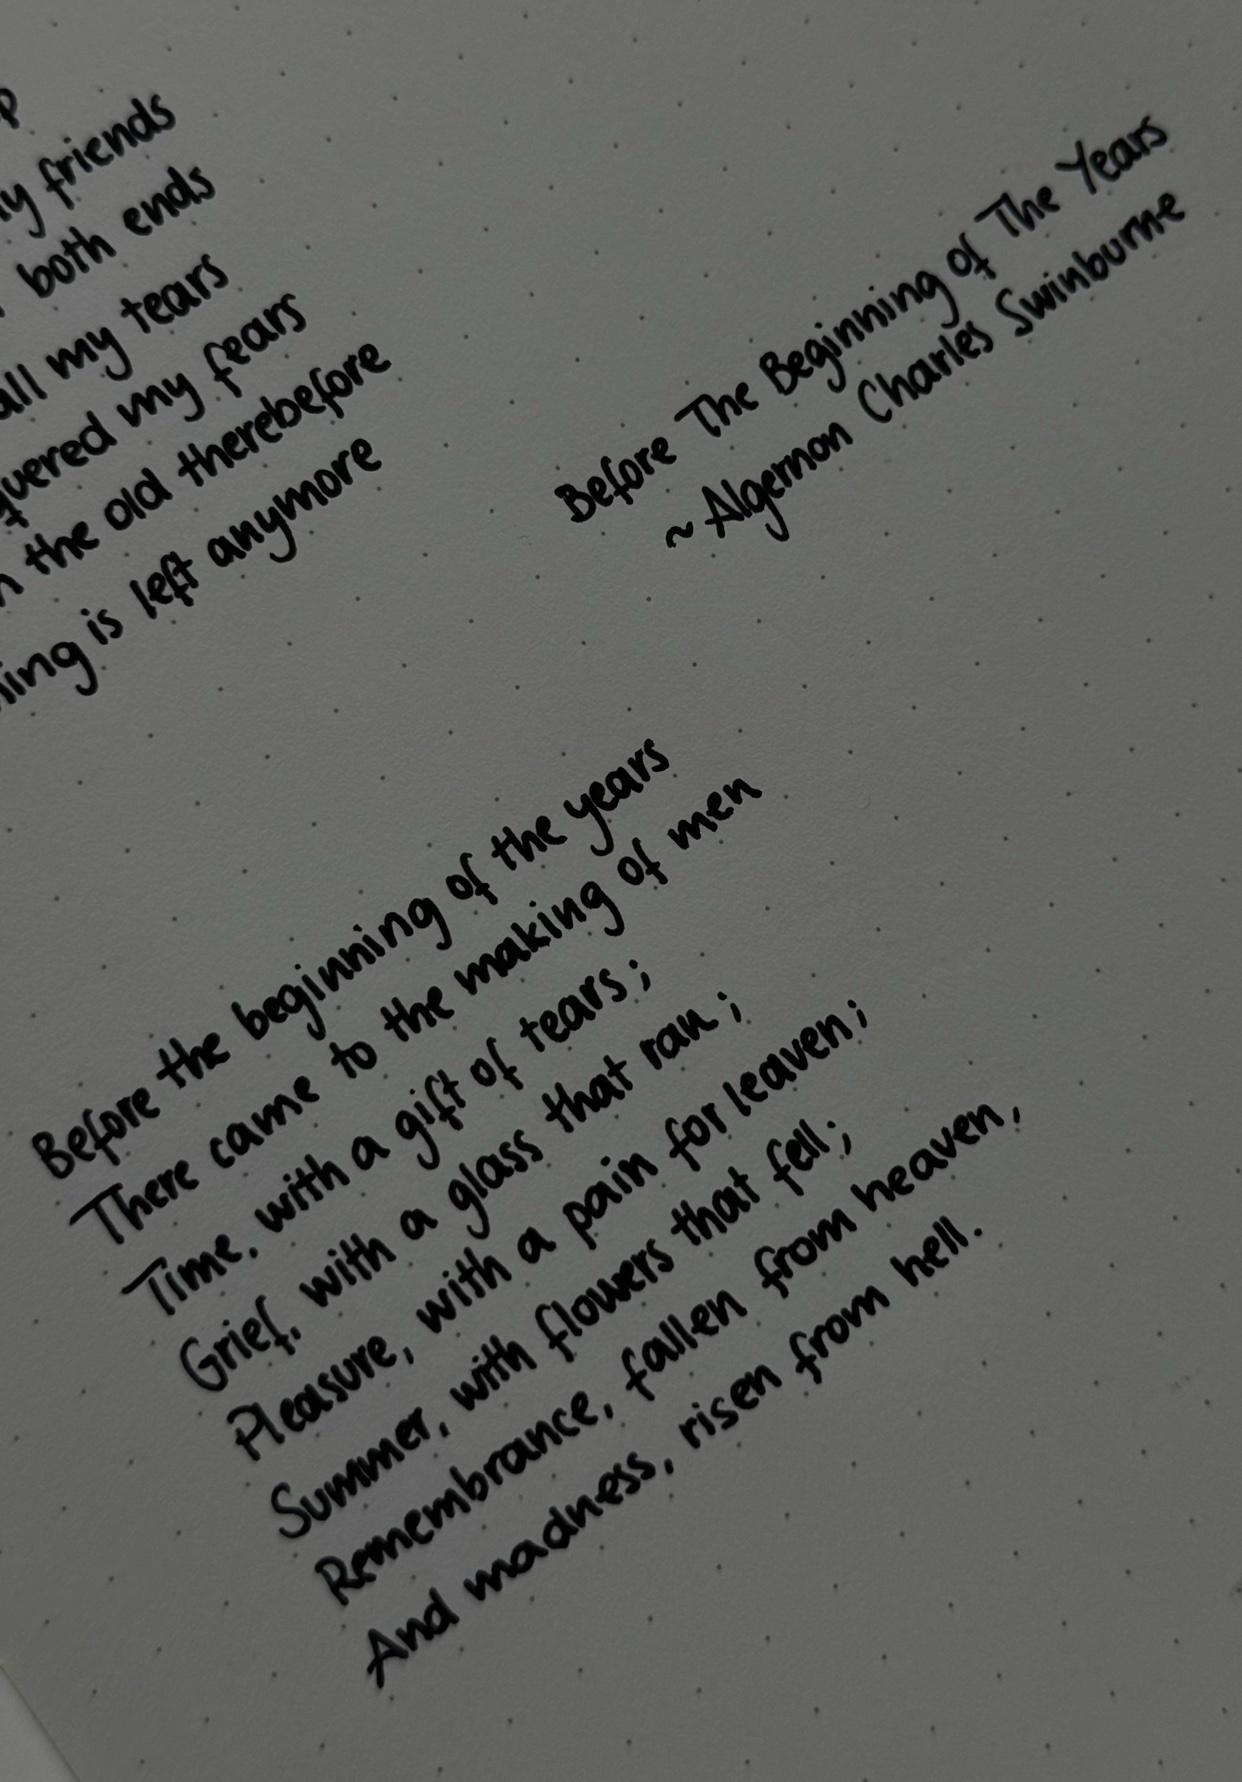 friends
both ends
all my tears
my fears
the old therebefore
is left anymore
Before The Beginning of The Years
~ Algernon Charles Swinburne
Before the beginning of the years
There came to the making of men
Time, with a gift of tears;
Grief, with a glass that ran;
Pleasure, with a pain for leaven;
Summer, with flowers that fell;
Remembrance, fallen from heaven,
And madness, risen from hell.